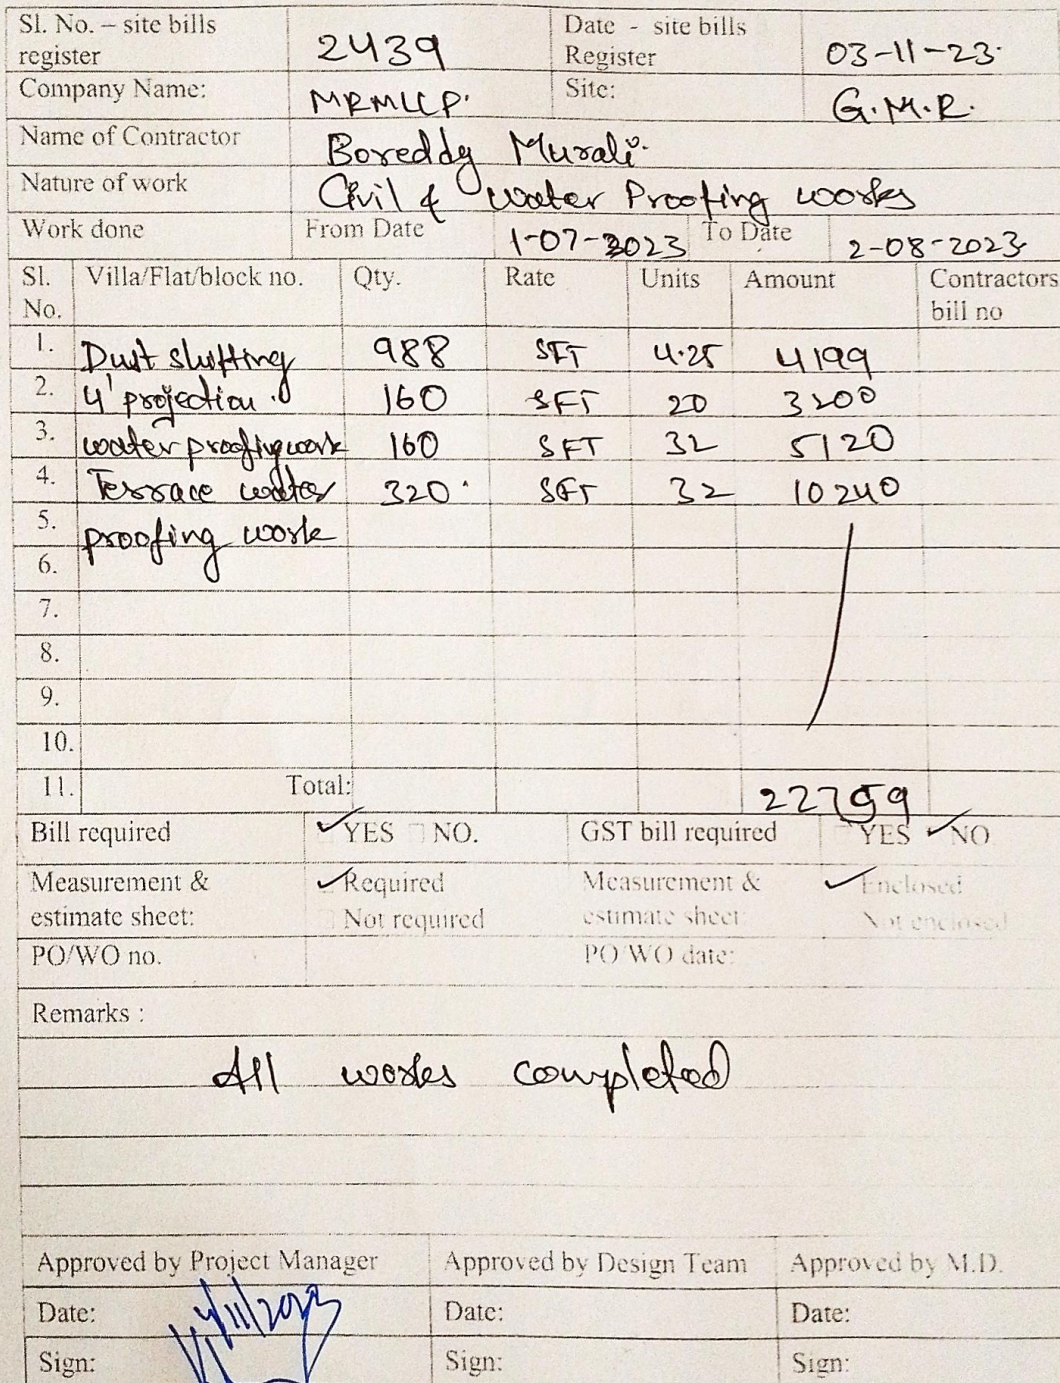 Sl. No. – site bills register 2439 Date - site bills Register 03-11-23.
Company Name: MRMLLP. Site: G.M.R.
Name of Contractor Boreddy Murali.
Nature of work Civil & water Proofing works
Work done From Date 1-07-2023 To Date 2-08-2023
Sl. No. Villa/Flat/block no. Qty. Rate Units Amount Contractors bill no
1. Dust shifting 988 SFT 4.25 4199
2. 4' projection . 160 SFT 20 3200
3. water proofing work 160 SFT 32 5120
4. Terrace water 320 SFT 32 10240
5. proofing work
6.
7.
8.
9.
10.
11. Total: 22759
Bill required YES NO. GST bill required YES NO
Measurement & estimate sheet: Required Not required Measurement & estimate sheet: Enclosed Not enclosed
PO/WO no. PO/WO date:
Remarks :
All works completed
Approved by Project Manager Approved by Design Team Approved by M.D.
Date: 4/11/2023 Date: Date:
Sign: Sign: Sign: